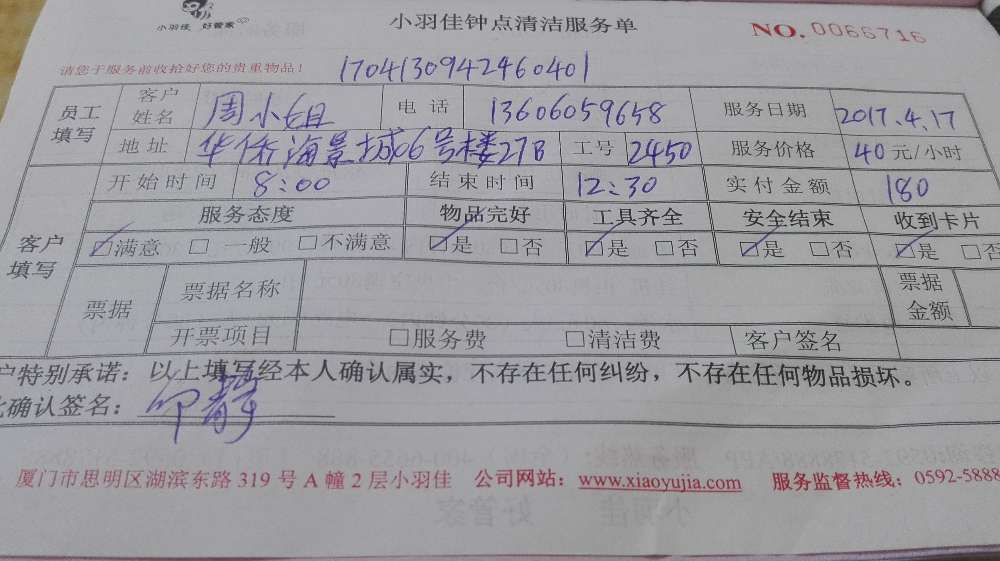 小羽佳 好管家
小羽佳钟点清洁服务单
NO. 0066716
请您于服务前收拾好您的贵重物品！
1704130942460401
员工填写 客户姓名 周小姐 电话 13606059658 服务日期 2017.4.17
地址 华侨海景城06号楼27B 工号 2450 服务价格 40元/小时
客户填写 开始时间 8:00 结束时间 12:30 实付金额 180
服务态度 物品完好 工具齐全 安全结束 收到卡片
☑满意 □一般 □不满意 ☑是 □否 ☑是 □否 ☑是 □否 ☑是 □否
票据 票据名称 票据金额
开票项目 □服务费 □清洁费 客户签名
户特别承诺：以上填写经本人确认属实，不存在任何纠纷，不存在任何物品损坏。
比确认签名：
厦门市思明区湖滨东路319号A幢2层小羽佳 公司网站：www.xiaoyujia.com 服务监督热线：0592-5888